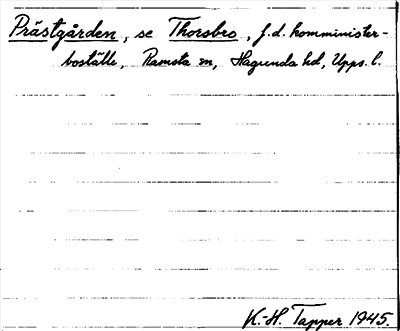 Prästgården, se Thorsbro, f.d. komminister-
boställe, Ramsta sn, Hagunda hd, Upps. l.
K.-H. Tapper 1945.